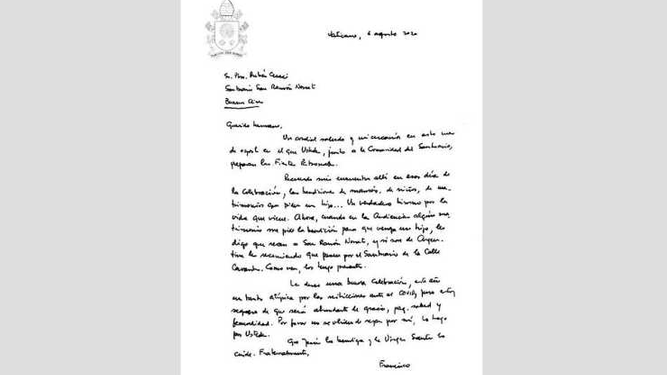 Vaticano, 6 agosto 2020
Sr. Pbro. Rubén Ceraci
Santuario San Ramón Nonato
Buenos Aires
Querido hermano,
Un cordial saludo y mi cercanía en este mes
de agosto en el que Ustedes, junto a la Comunidad del Santuario,
preparan las Fiestas Patronales.
Recuerdo mis encuentros allí en esos días de
la Celebración, las bendiciones de mamás, de niños, de ma-
trimonios que piden un hijo... Un verdadero himno por la
vida que viene. Ahora, cuando en las Audiencias algún ma-
trimonio me pide la bendición para que venga un hijo, les
digo que recen a San Ramón Nonato, y si son de Argen-
tina les recomiendo que pasen por el Santuario de la Calle
Cervantes. Como ven, los tengo presente.
Le deseo una buena Celebración, este año
un tanto atípica por las restricciones ante el COVID, pero estoy
seguro de que será abundante de gracia, paz, salud y
fecundidad. Por favor no se olviden de rezar por mí, lo hago
por Ustedes.
Que Jesús los bendiga y la Virgen Santa los
cuide. Fraternalmente,
Francisco